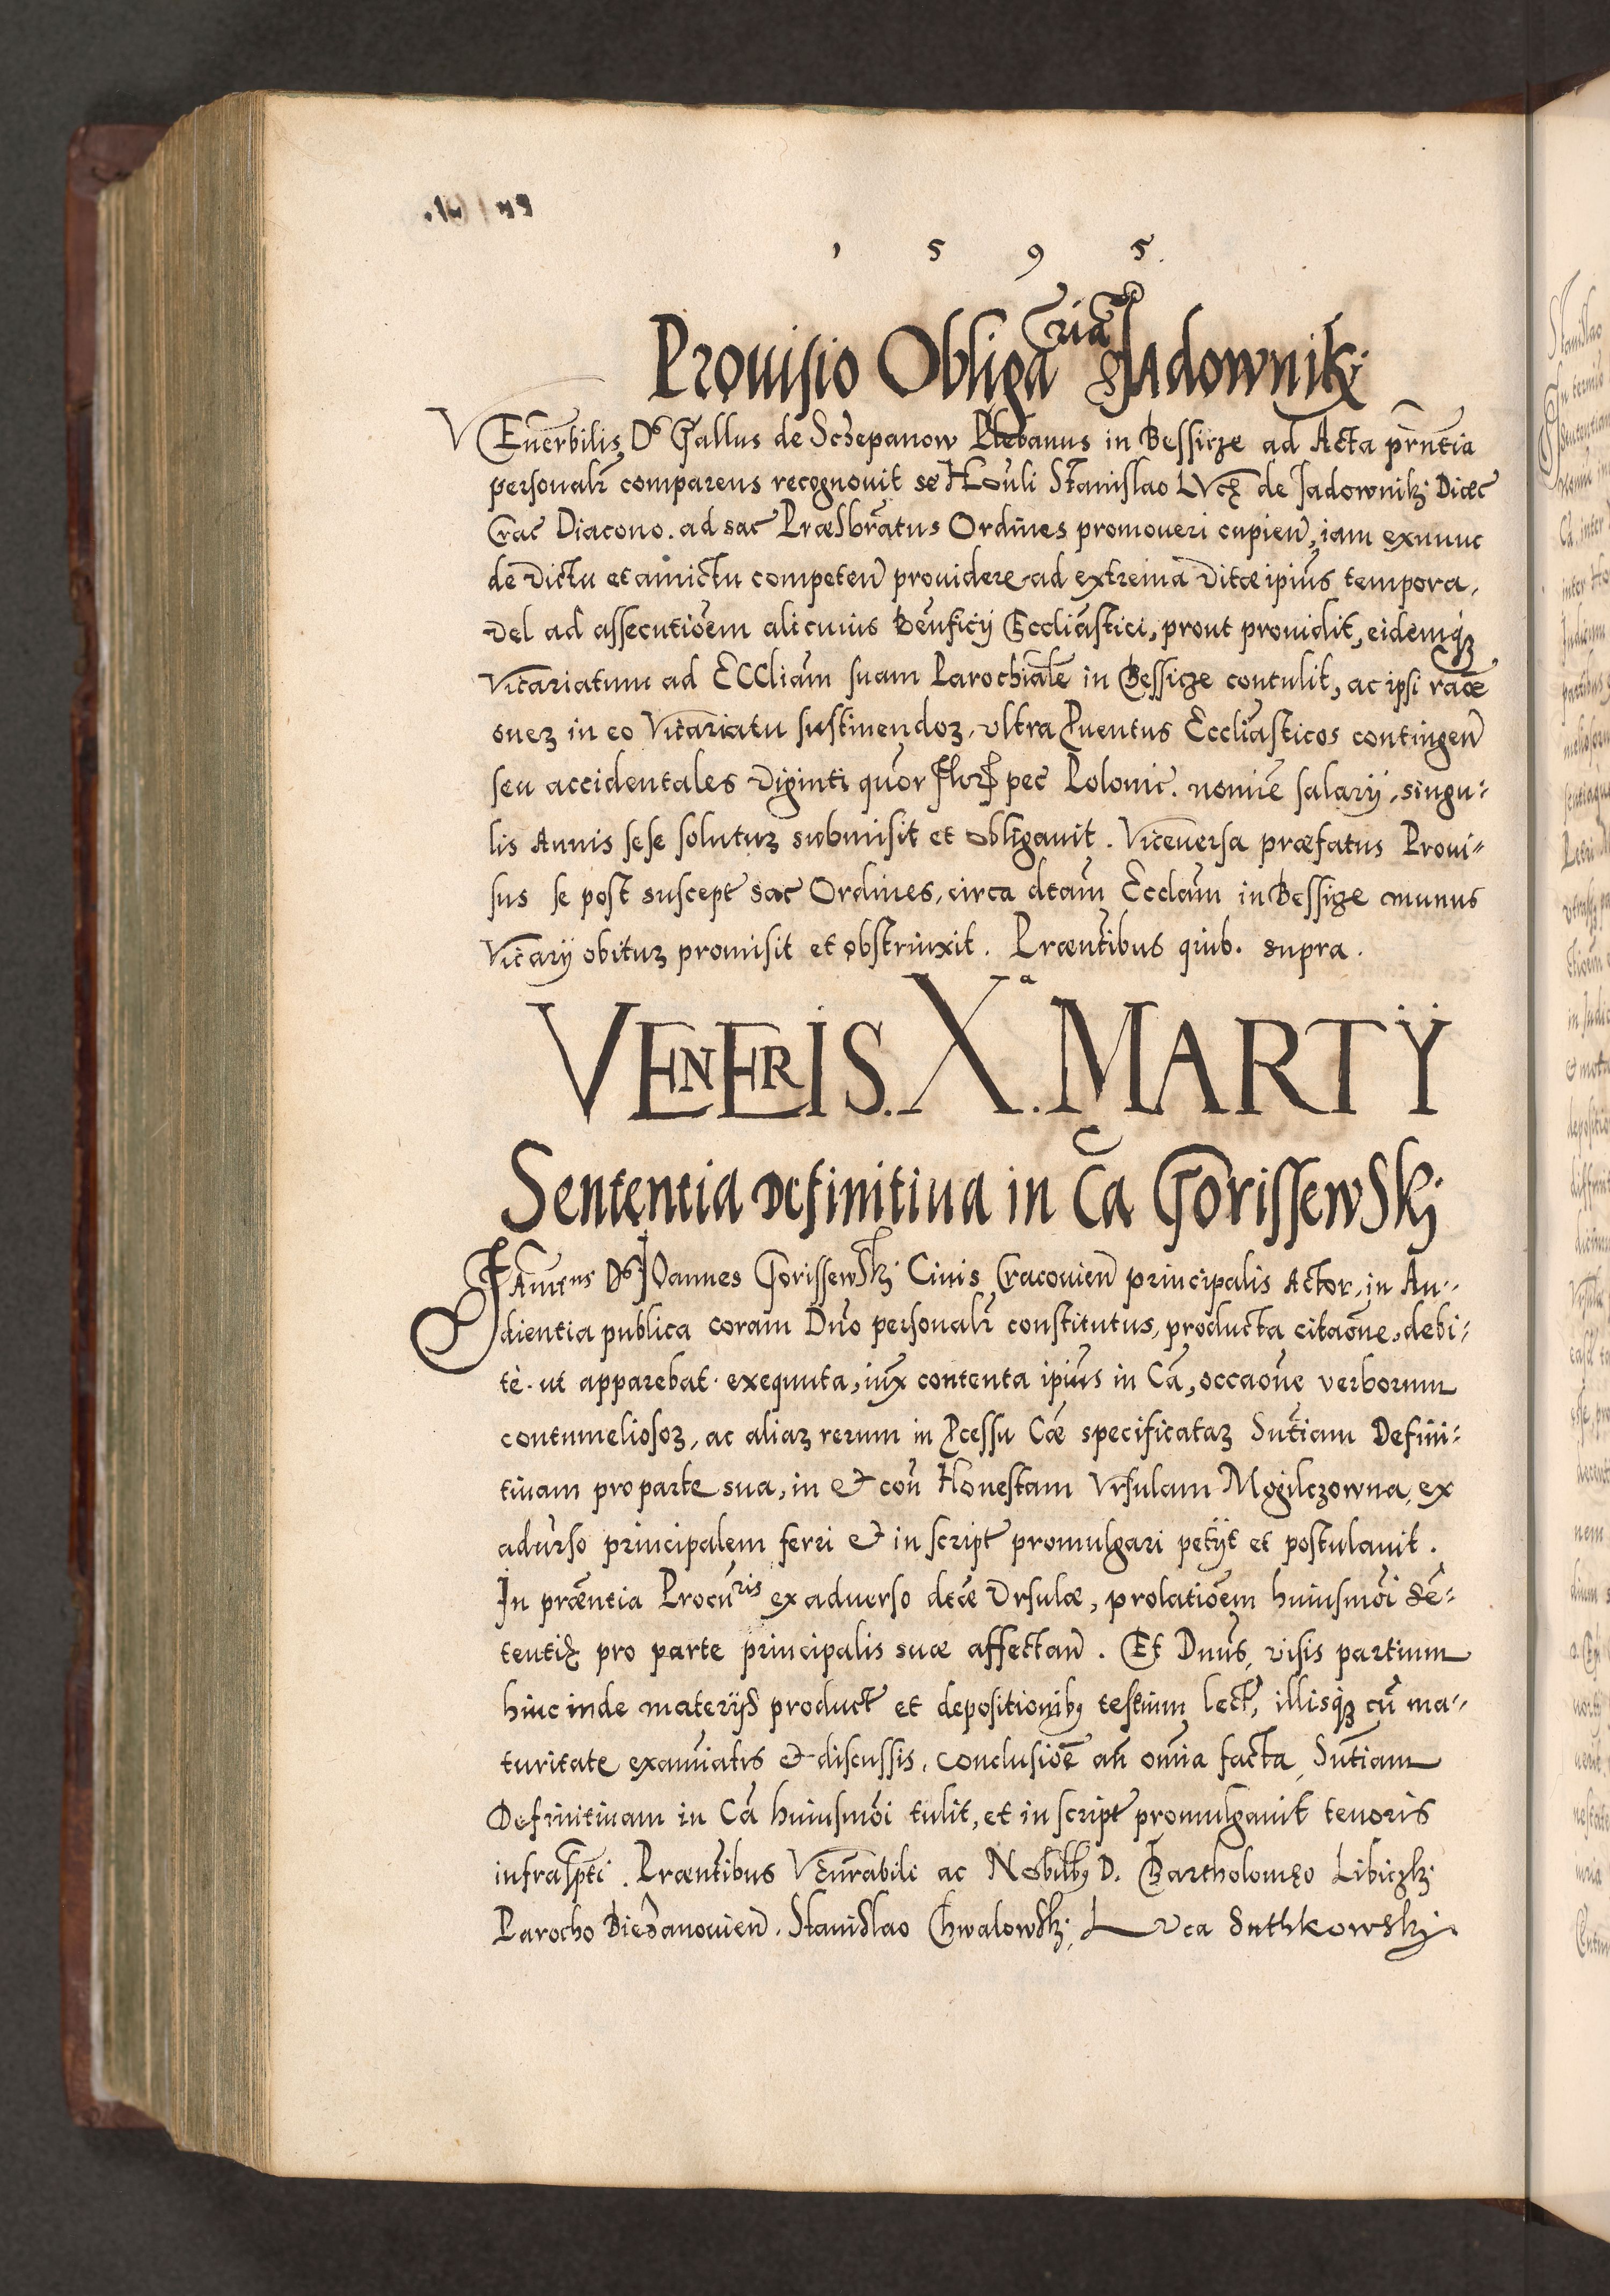 1 5 9 5.
Prouisio Obligãria Jadowniki
VEnerbilis Ds Gallus de Sczepanow Plebanus in Bessicze ad Acta prñtia
personalr comparens recognouit se Honli Stanislao Lucę de Jadowniki Dioec
Crac Diacono. ad sac Præsbratus Ordines promoueri cupien, iam exnunc
de victu et amictu competen prouidere ad extrema vitæ ipius tempora,
vel ad assecutiõem alicuius Benficij Eccliastici, prout prouidit, eidemq3
Vicariatum ad ECCliam suam Parochialẽ in Bessicze contulit, ac ipsi racõe
onez in eo Vicariatu sustinendoz, vltra Puentus Eccliasticos contingen
seu accidentales viginti quor flor pec Polonic. nomiẽ salarij, singu-
lis Annis sese solutuz submisit et obligauit. Viceuersa præfatus Proui-
sus se post suscept sac Ordines, circa dtam Ecclam in Bessicze munus
Vicarij obituz promisit et obstrinxit. Præntibus quib. supra.
VENERIS. Xa. MARTIJ
Sententia Definitiua in Cã Gorissewski
FAmens Ds JOannes Gorissewski Ciuis Cracouien principalis Actor, in Au-
dientia publica coram Dño personalr constitutus, producta citaõne, debi-
tè. ut apparebat. exequuta, iux contenta ipius in Cã, occaõne verborum
contumeliosoz, ac aliaz rerum in Pcessu Cæ specificataz Sñtiam Defini-
tiuam pro parte sua, in & con Honestam Vrsulam Mogilczowna, ex
adurso principalem ferri & in script promulgari petijt et postulauit.
In præntia Procuris ex aduerso dtæ Vrsulæ, prolatiõem huiusmõi Sẽ-
tentię pro parte principalis suæ affectan. Et Dnus, visis partium
hinc inde materijs product et depositionibus testium lect, illisq3 cũ ma-
turitate examiatis & discussis, conclusiõe añ omia facta, Sñtiam
Definitiuam in Cã huiusmõi tulit, et in script promulgauit tenoris
infrascpti. Præntibus Venrabili ac Nobilibus D. Bartholomęo Libiczki
Parocho Biezanouien. Stanislao Chwalowski, Luca Suthkowski.